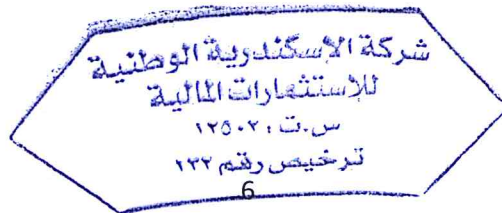 شركة الاسكندرية الوطنية
للاستثمارات المالية
س.ت : ١٢٥٠٢
ترخيص رقم ٢٣٢
6